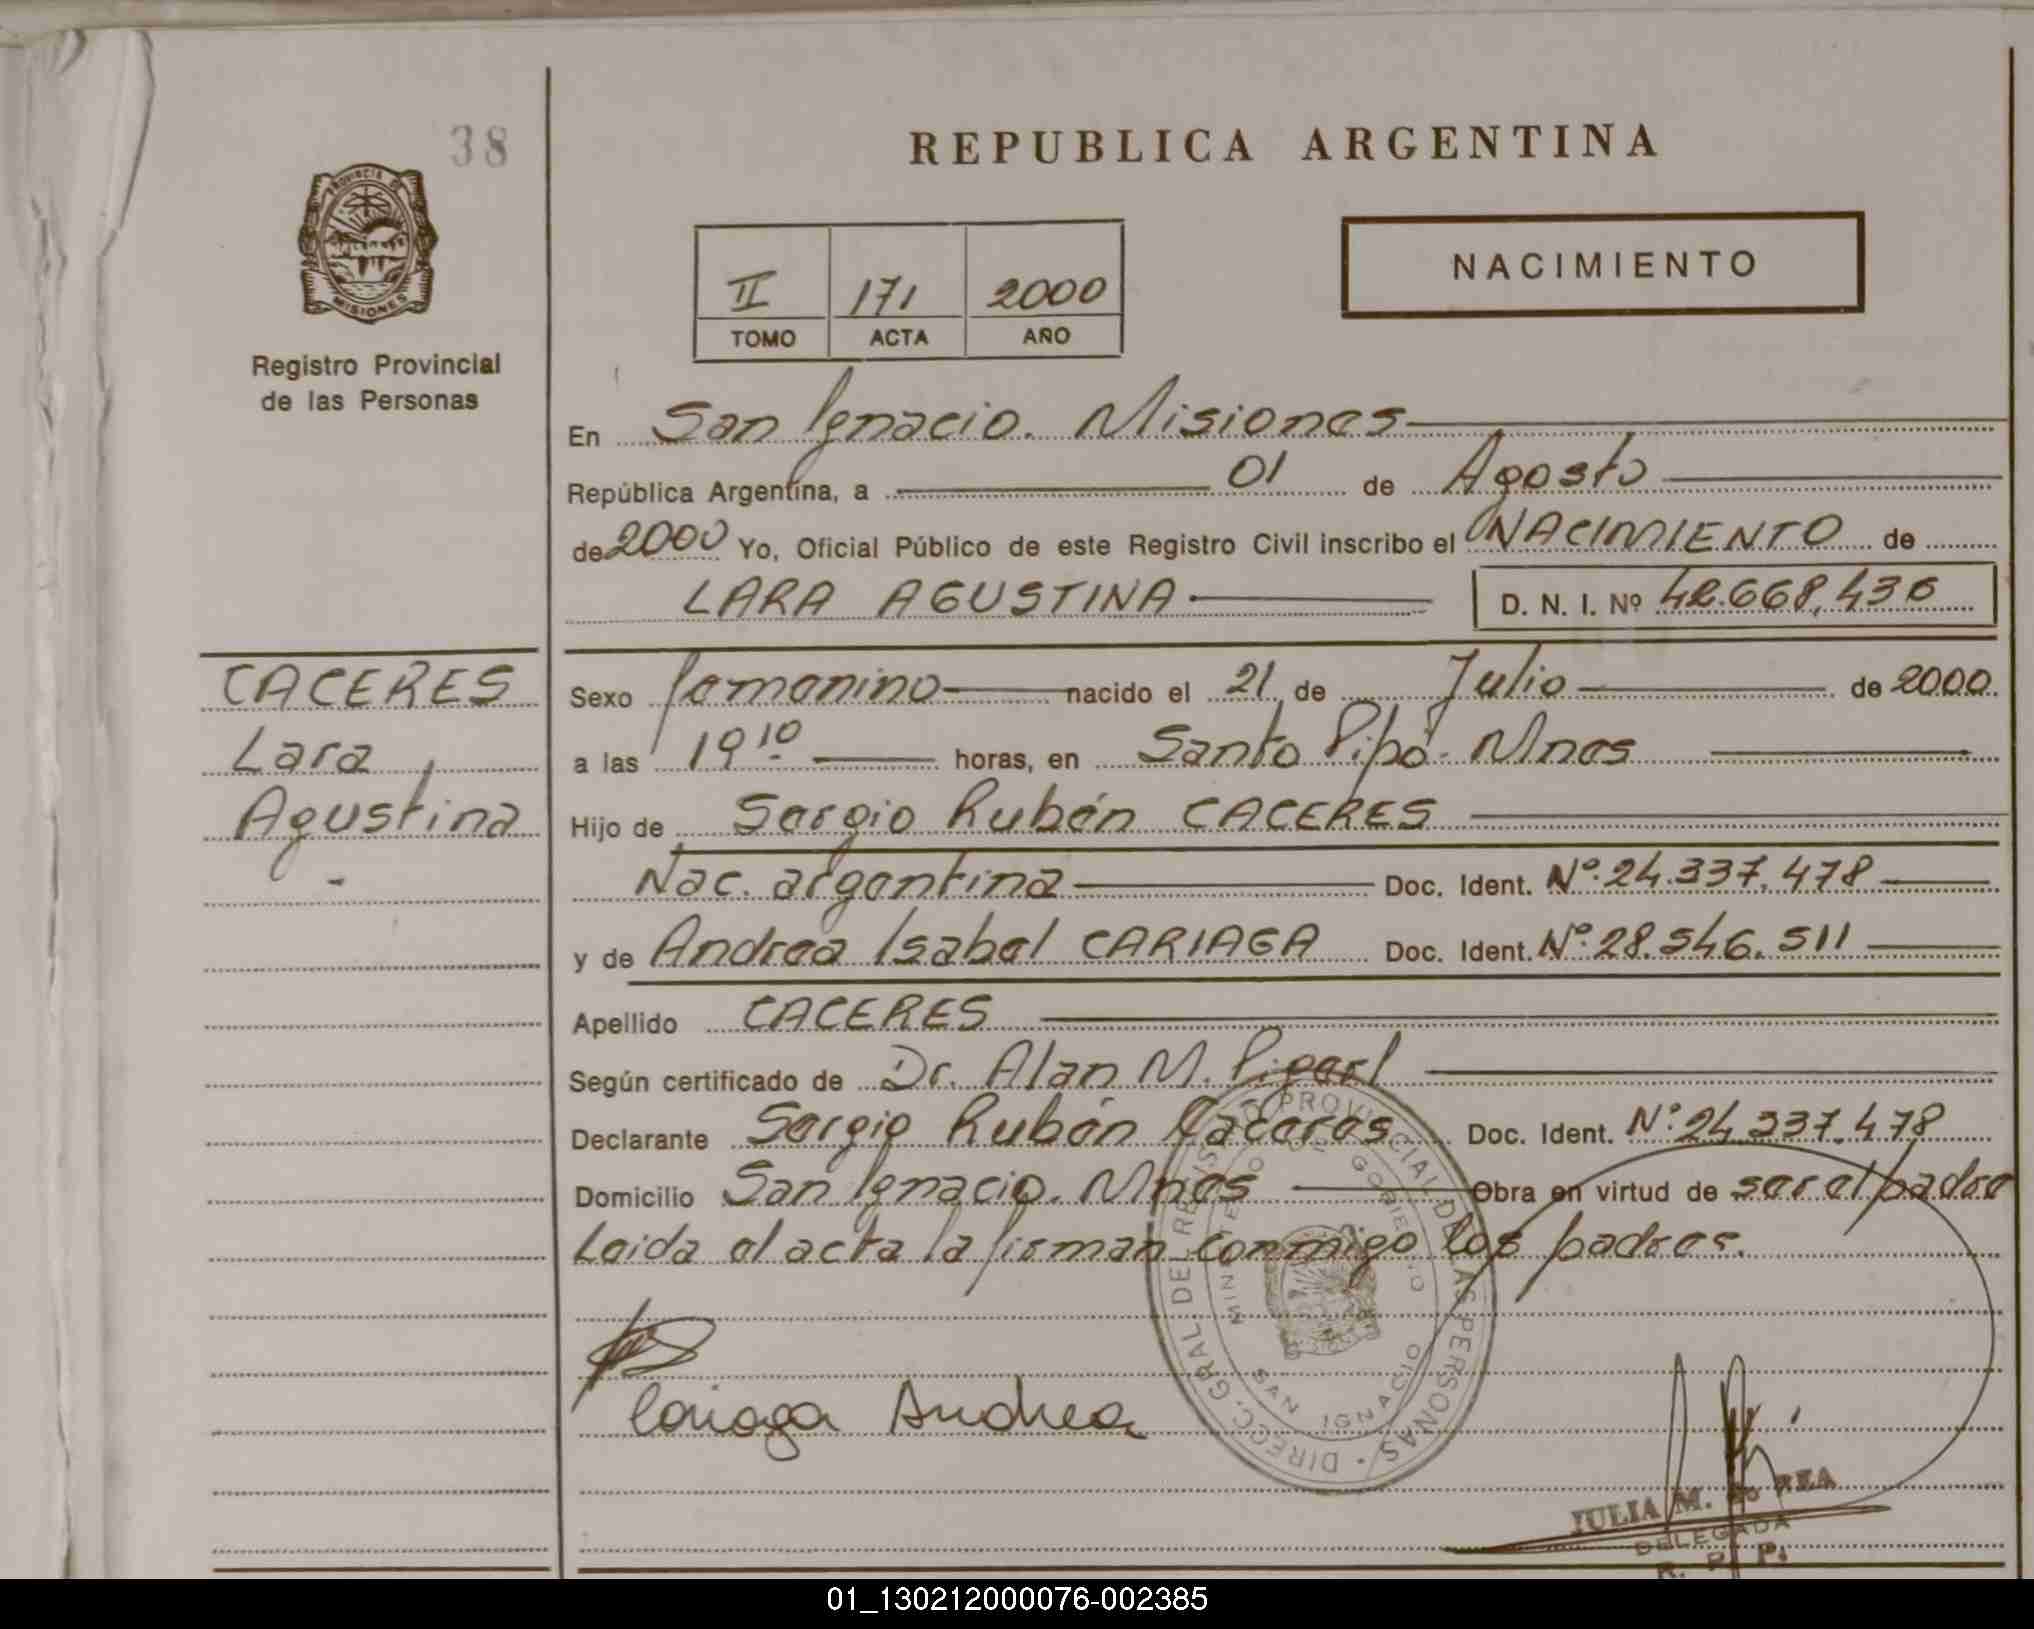 38
PROVINCIA DE
MISIONES
Registro Provincial
de las Personas
REPUBLICA ARGENTINA
II 171 2000
TOMO ACTA AÑO
NACIMIENTO
En San Ignacio. Misiones
República Argentina, a 01 de Agosto
de 2000 Yo, Oficial Público de este Registro Civil inscribo el NACIMIENTO de
LARA AGUSTINA D. N. I. Nº 42.668.436
CACERES
Lara
Agustina
Sexo femenino nacido el 21 de Julio de 2000.
a las 19 10 horas, en Santo Pipó - Mnes
Hijo de Sergio Rubén CACERES
Nac. argentina Doc. Ident. Nº 24.337.478
y de Andrea Isabel CARIAGA Doc. Ident. Nº 28.546.511
Apellido CACERES
Según certificado de Dr. Alan M.
Declarante Sergio Rubén Caceres Doc. Ident. Nº 24.337.478
Domicilio San Ignacio. Mnes Obra en virtud de ser el padre
Leida el acta la firman conmigo los padres.
DIRECC. GRAL. DEL REGISTRO PROVINCIAL DE LAS PERSONAS
MINISTERIO DE GOBIERNO
SAN IGNACIO
Cariaga Andrea
JULIA M.
DELEGADA
R. P. P.
01_130212000076-002385